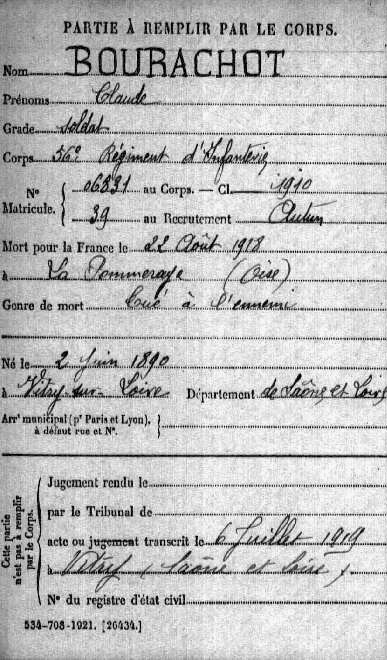 PARTIE À REMPLIR PAR LE CORPS.
Nom BOURACHOT
Prénoms Claude
Grade soldat
Corps 56e Régiment d'Infanterie
Nº Matricule. { 06831 au Corps. — Cl. 1910
39 au Recrutement Autun
Mort pour la France le 22 Août 1918
à La Pommeraye (Oise)
Genre de mort Tué à l'ennemi
Né le 2 Juin 1890
à Vitry-sur-Loire Département de Saône et Loire
Arr' municipal (p' Paris et Lyon), à défaut rue et Nº. }
Cette partie n'est pas à remplir par le Corps. {
Jugement rendu le
par le Tribunal de
acte ou jugement transcrit le 6 Juillet 1919
à Vitry (Saône et Loire)
Nº du registre d'état civil
534-708-1921. [26434.]